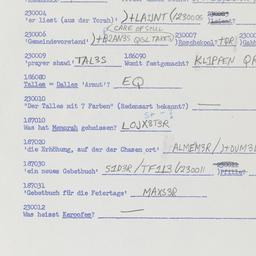 230004
'er liest (aus der Torah)' )+LAJNT (/230005
< CARE OF SHUL
230006 230007
'Gemeindevorstand'
230009 186090
'prayer shawl' TAL3S Womit festgemacht? KLIPPEN
186080
Talles = Dalles 'Armut'? EQ
230010
"Der Talles mit 7 Farben" (Redensart bekannt?) —
187010
Was hat Menorah geheissen? LOJX3T3R
187020
'die Erhöhung, auf der der Chasen ort' ALMEM3R/
187030
'ein neues Gebetbuch' S1D3R/TF113/230011
187031
'Gebetbuch für die Feiertage' MAXS3R
230012
Was heisst Keroofes? —